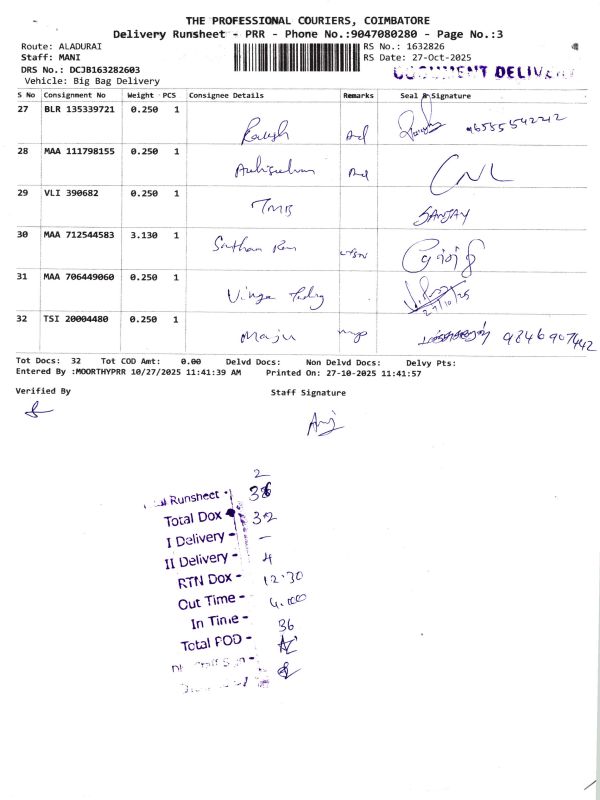 THE PROFESSIONAL COURIERS, COIMBATORE
Delivery Runsheet - PRR - Phone No.:9047080280 - Page No.:3
Route: ALADURAI RS No.: 1632826
Staff: MANI RS Date: 27-Oct-2025
DRS No.: DCJB163282603
Vehicle: Big Bag Delivery
DOCUMENT DELIVERY
S No Consignment No Weight PCS Consignee Details Remarks Seal & Signature
27 BLR 135339721 0.250 1
28 MAA 111798155 0.250 1 CNL
29 VLI 390682 0.250 1 TMB SANJAY
30 MAA 712544583 3.130 1
31 MAA 706449060 0.250 1 27/10/25
32 TSI 20004480 0.250 1 Maju 9846907442
Tot Docs: 32 Tot COD Amt: 0.00 Delvd Docs: Non Delvd Docs: Delvy Pts:
Entered By :MOORTHYPRR 10/27/2025 11:41:39 AM Printed On: 27-10-2025 11:41:57
Verified By Staff Signature
2
Runsheet -
Total Dox - 32
I Delivery - -
II Delivery - 4
RTN Dox - 12.30
Out Time - 4.00
In Time - 36
Total POD -